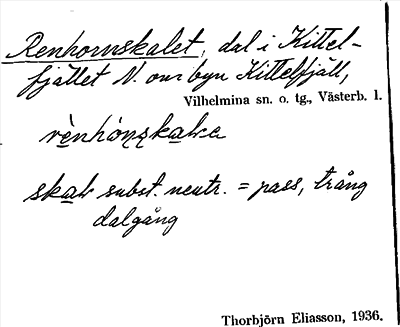 Renhornskalet, dal i Kittel-
fjället N. om byn Kittelfjäll,
Vilhelmina sn. o. tg., Västerb. l.
skal subst. neutr. = pass, trång
dalgång
Thorbjörn Eliasson, 1936.